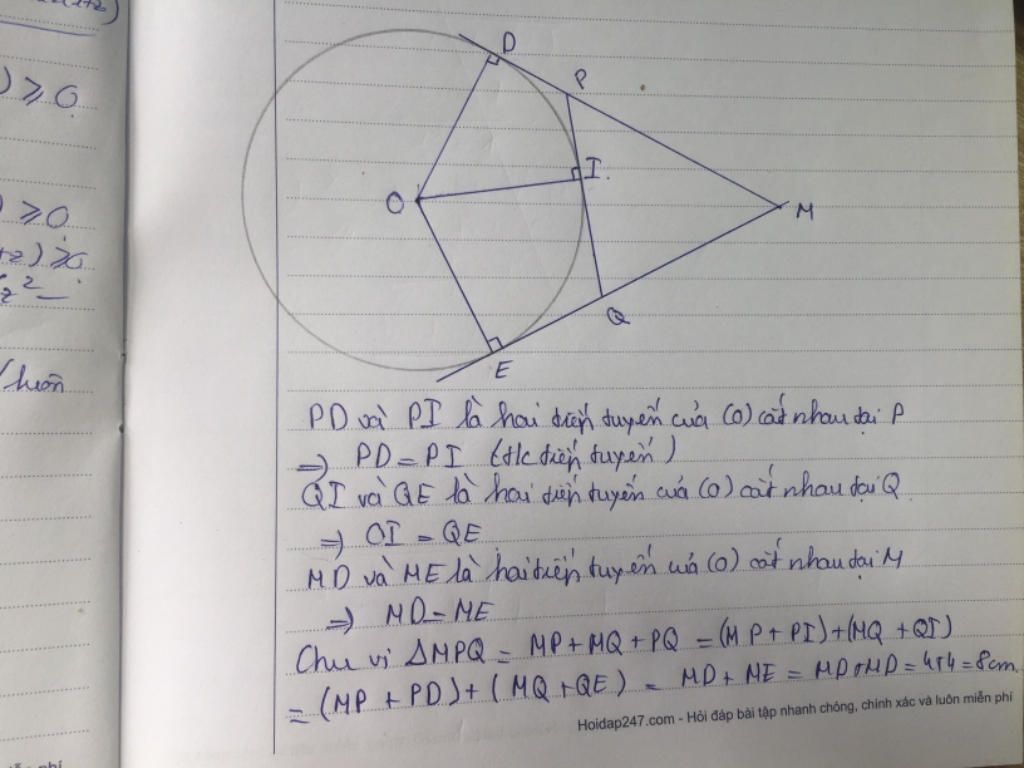 ) ⩾ 0
) ⩾ 0
+z) ⩾ 0
z² —
luôn
D
P
I.
O
M
Q
E
PD và PI là hai tiếp tuyến của (O) cắt nhau tại P
=> PD = PI (t/c tiếp tuyến)
QI và QE là hai tiếp tuyến của (O) cắt nhau tại Q
=> OI = QE
MD và ME là hai tiếp tuyến của (O) cắt nhau tại M
=> MD = ME
Chu vi ΔMPQ = MP + MQ + PQ = (MP + PI) + (MQ + QI)
= (MP + PD) + (MQ + QE) = MD + ME = MD + MD = 4+4 = 8cm.
Hoidap247.com - Hỏi đáp bài tập nhanh chóng, chính xác và luôn miễn phí
phí